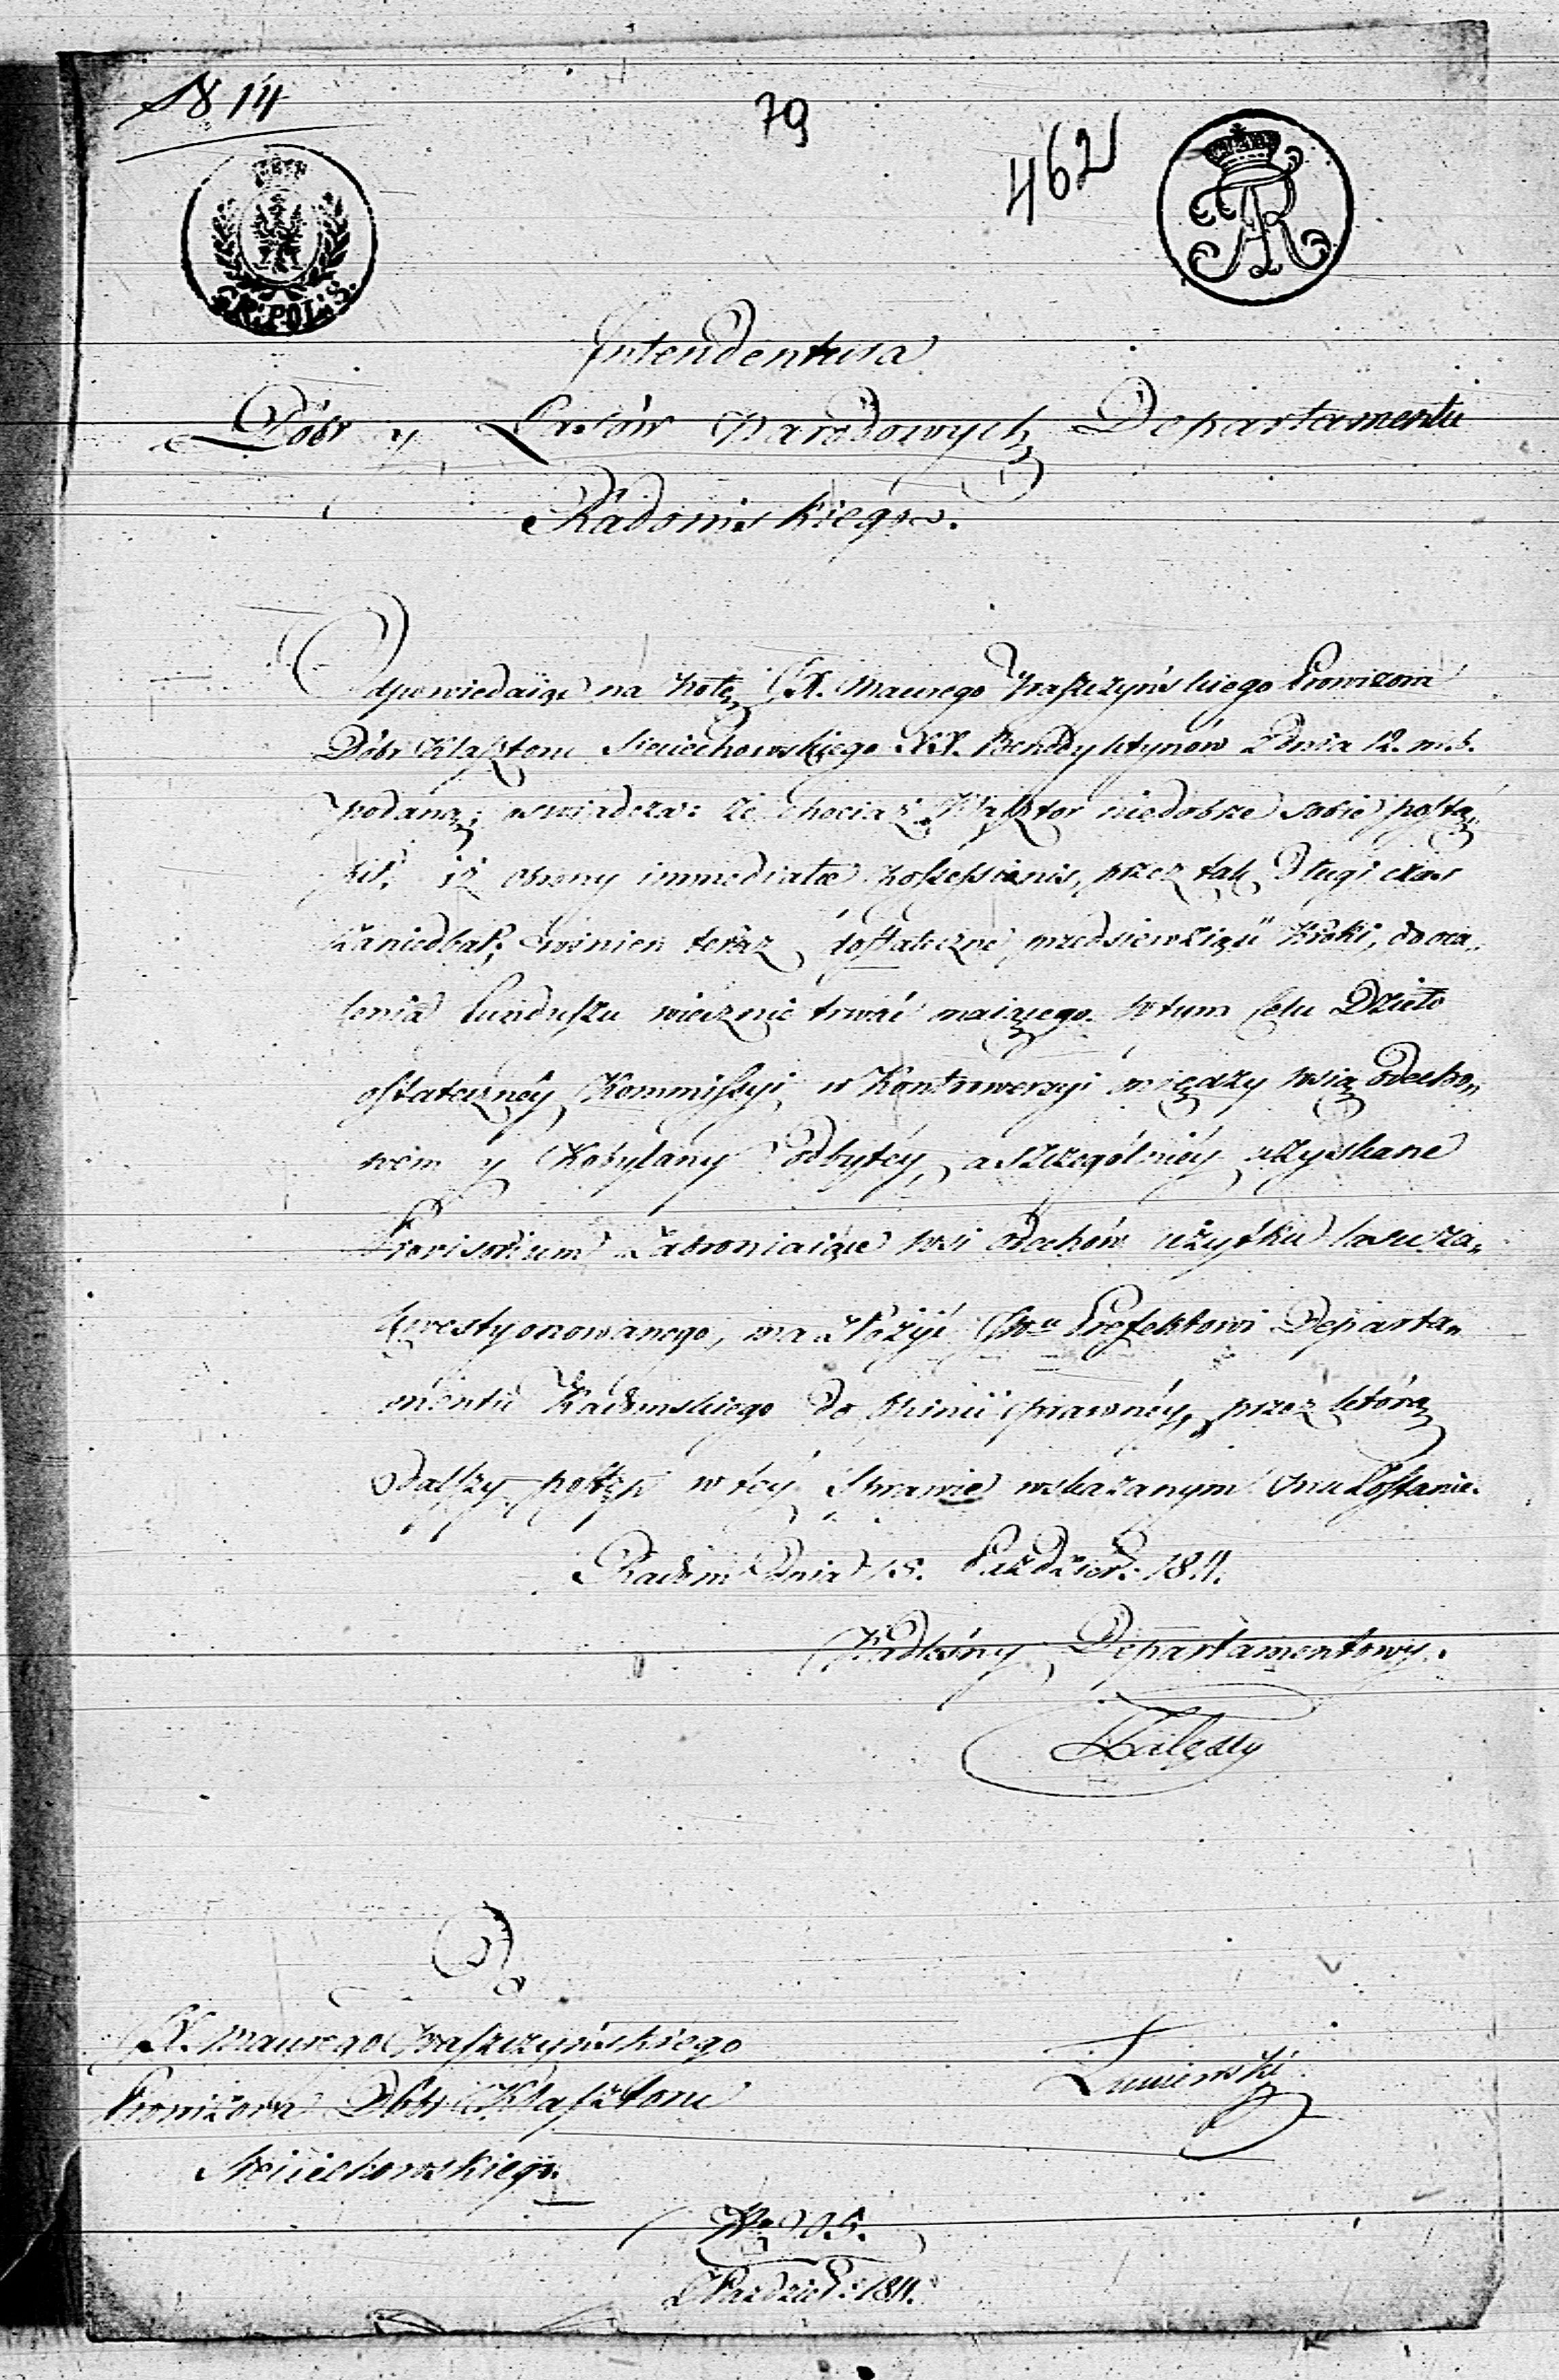 1814
79
462
GR. POL: S.
AR
Intendentura
Dóbr y Lasów Narodowych Departamentu
Radomskiego.
Odpowiedaiąc na Notę JX. Maurego Provizora
Dóbr Klasztoru Sieciechowskiego XX. Benedyktynów Dnia 12. m. b.
podaną; oświadcza: że chociaż Klasztor niedobrze sobie postą„
pił, iż obrony immediatae possessionis, przez tak długi czas
zaniedbał; winien teraz dostateczne przedsiewziąść kroki, do oca„
lenia Funduszu wiecznie trwać maiącego. W tym Celu Dzieło
ostateczney Kommissyi w Kontrowersyi między wsią Odecho„
wem y Kobylany odbytéy, a szczególniéy uzyskane
Provisorium zabroniaiące wsi Odechów użytku lasu za„
kwestyonowanego, ma złożyć JWu Prefektowi Departa„
mentu Radomskiego do Opinii prawnéy, przez którą
dalszy postęp w téy Sprawie wskazanym Onu zostanie.
Radom Dnia 15. Paździer: 1811.
Nadleśny Departamentowy.
Do
JX. Maurego
Prowizora Dóbr Klasztoru
Sieciechowskiego.
No 905.
Paździer: 1811.